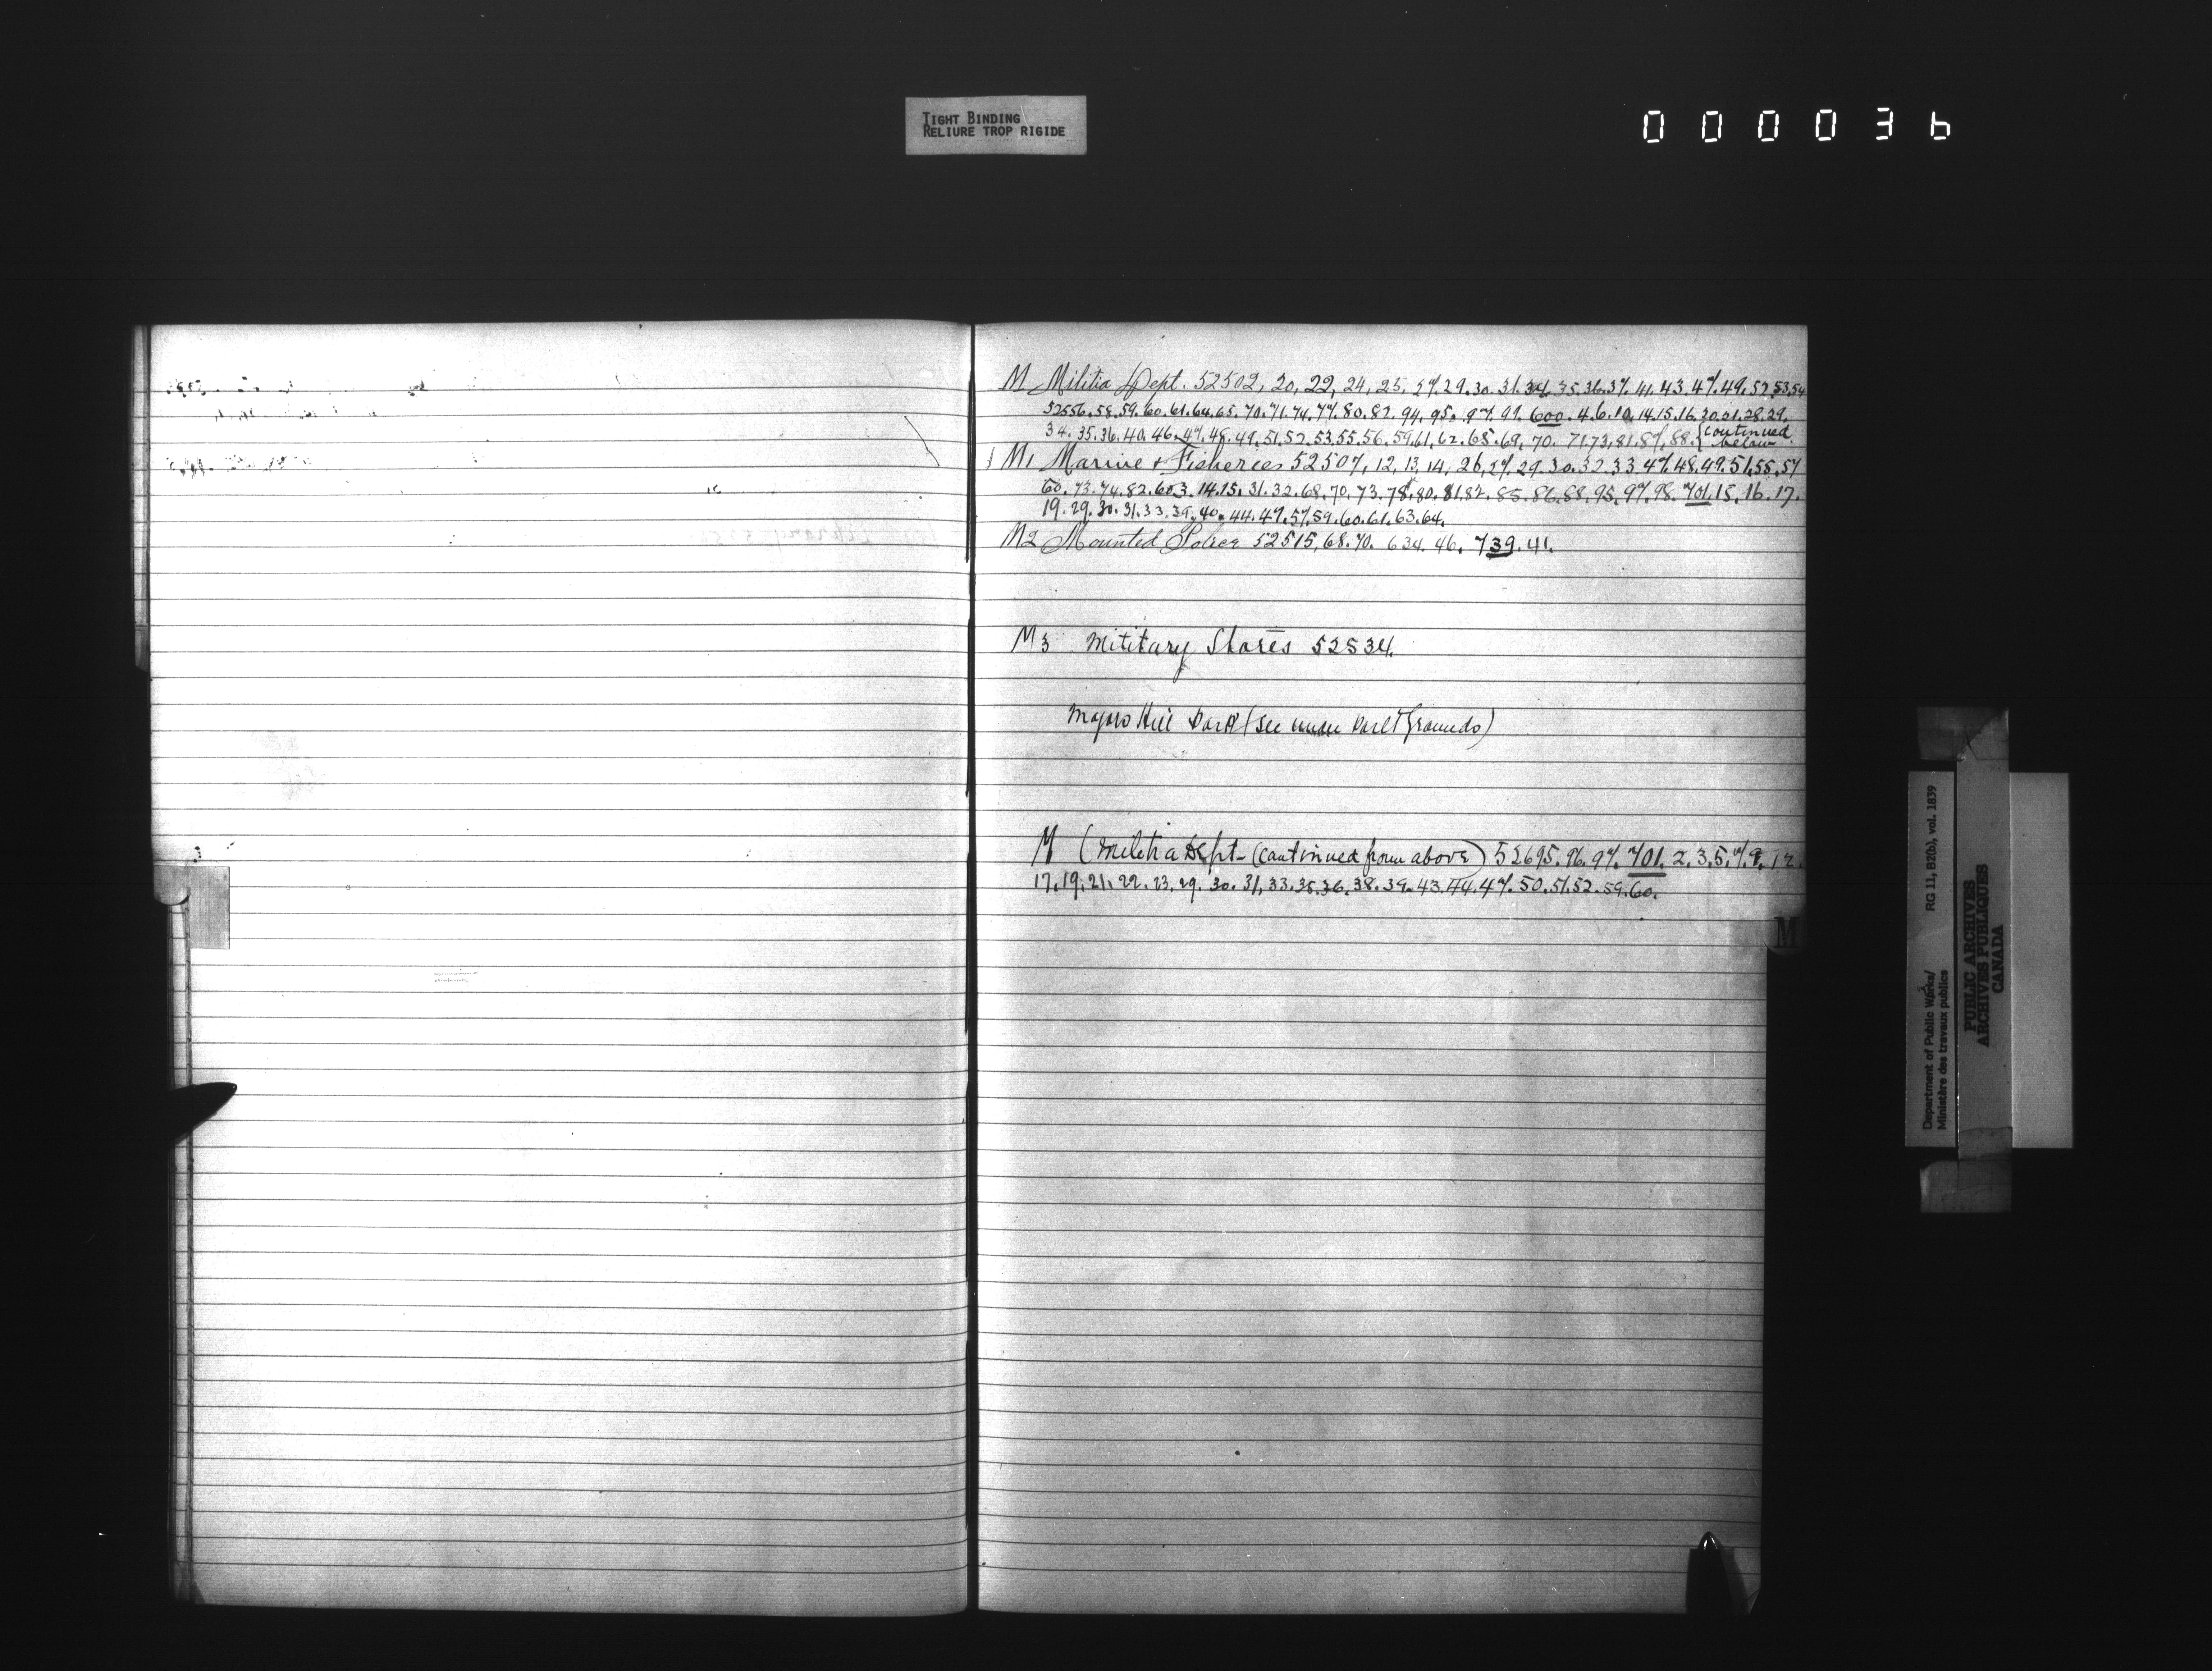 TIGHT BINDING
RELIURE TROP RIGIDE
000036
M Militia Dept. 52502, 20, 22, 24, 25, 27, 29. 30. 31. 34. 35. 36. 37. 41. 43. 47. 49. 52. 53. 54
52556. 58. 59. 60. 61. 64. 65. 70. 71. 74. 77. 80. 82. 94. 95. 97. 99. 600. 4. 6. 10. 14. 15. 16. 20. 21. 28. 29.
34. 35. 36. 40. 46. 47. 48. 49. 51. 52. 53. 55. 56. 59. 61. 62. 65. 69. 70. 71. 73. 81. 87. 88. {continued below
M1 Marine & Fisheries 52507, 12, 13, 14, 26, 27. 29. 30. 32. 33. 47. 48. 49. 51. 55. 57
60. 73. 74. 82. 603. 14. 15. 31. 32. 68. 70. 73. 78. 80. 81. 82. 85. 86. 88. 95. 97. 98. 701. 15. 16. 17.
19. 29. 30. 31. 33. 39. 40. 44. 47. 57. 59. 60. 61. 63. 64.
M2 Mounted Police 52515, 68. 70. 634. 46. 739. 41.
M3 Military Stores 52534.
Majors Hill Park (see under Parlt Grounds)
M (Militia Dept - (continued from above) 52695. 96. 97. 701. 2. 3. 5. 7. 9. 12.
17. 19. 21. 22. 23. 29. 30. 31. 33. 35. 36. 38. 39. 43. 44. 47. 50. 51. 52. 59. 60.
M
Department of Public Works/ RG 11, B2(b), vol. 1839
Ministère des travaux publics
PUBLIC ARCHIVES
ARCHIVES PUBLIQUES
CANADA